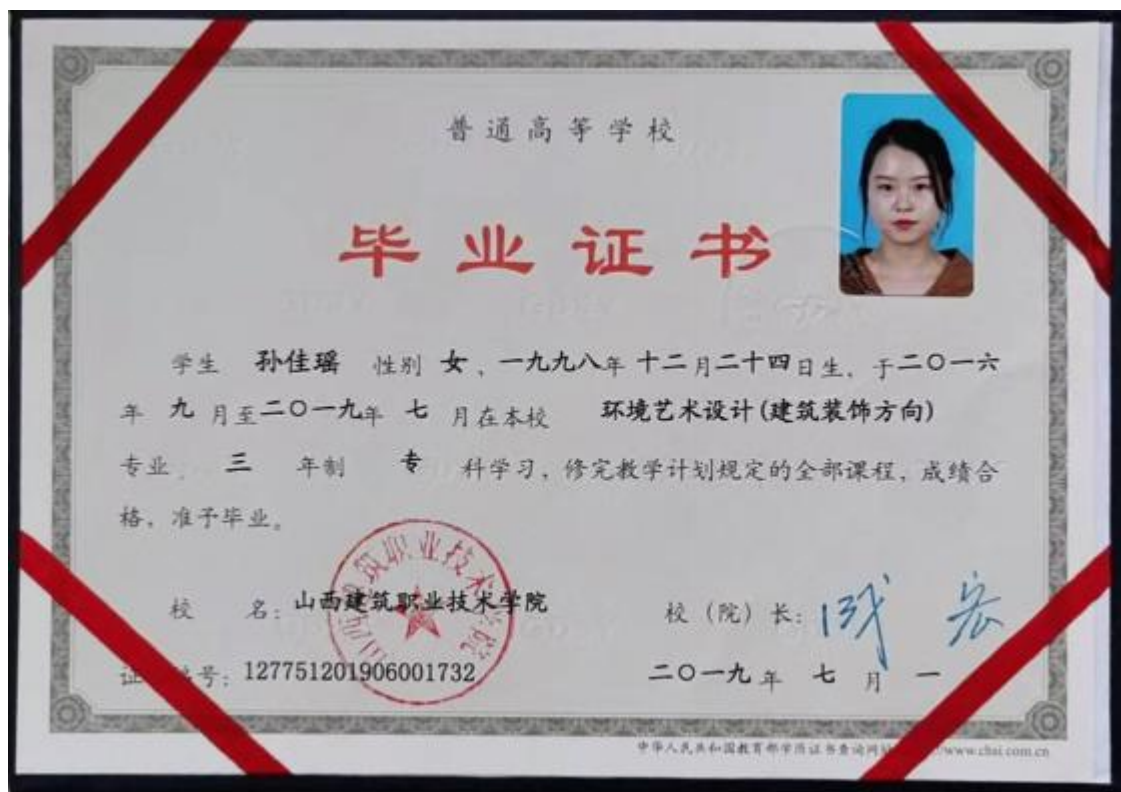 普通高等学校
毕业证书
学生 孙佳瑶 性别 女、一九九八年 十二月二十四日生、于二〇一六
年 九 月至二〇一九年 七 月在本校 环境艺术设计(建筑装饰方向)
专业 三 年制 专 科学习，修完教学计划规定的全部课程，成绩合
格，准予毕业。
校 名：山西建筑职业技术学院
校（院）长：
山西建筑职业技术学院
号：127751201906001732
二〇一九年 七 月 一
中华人民共和国教育部学历证书查询网
www.chsi.com.cn